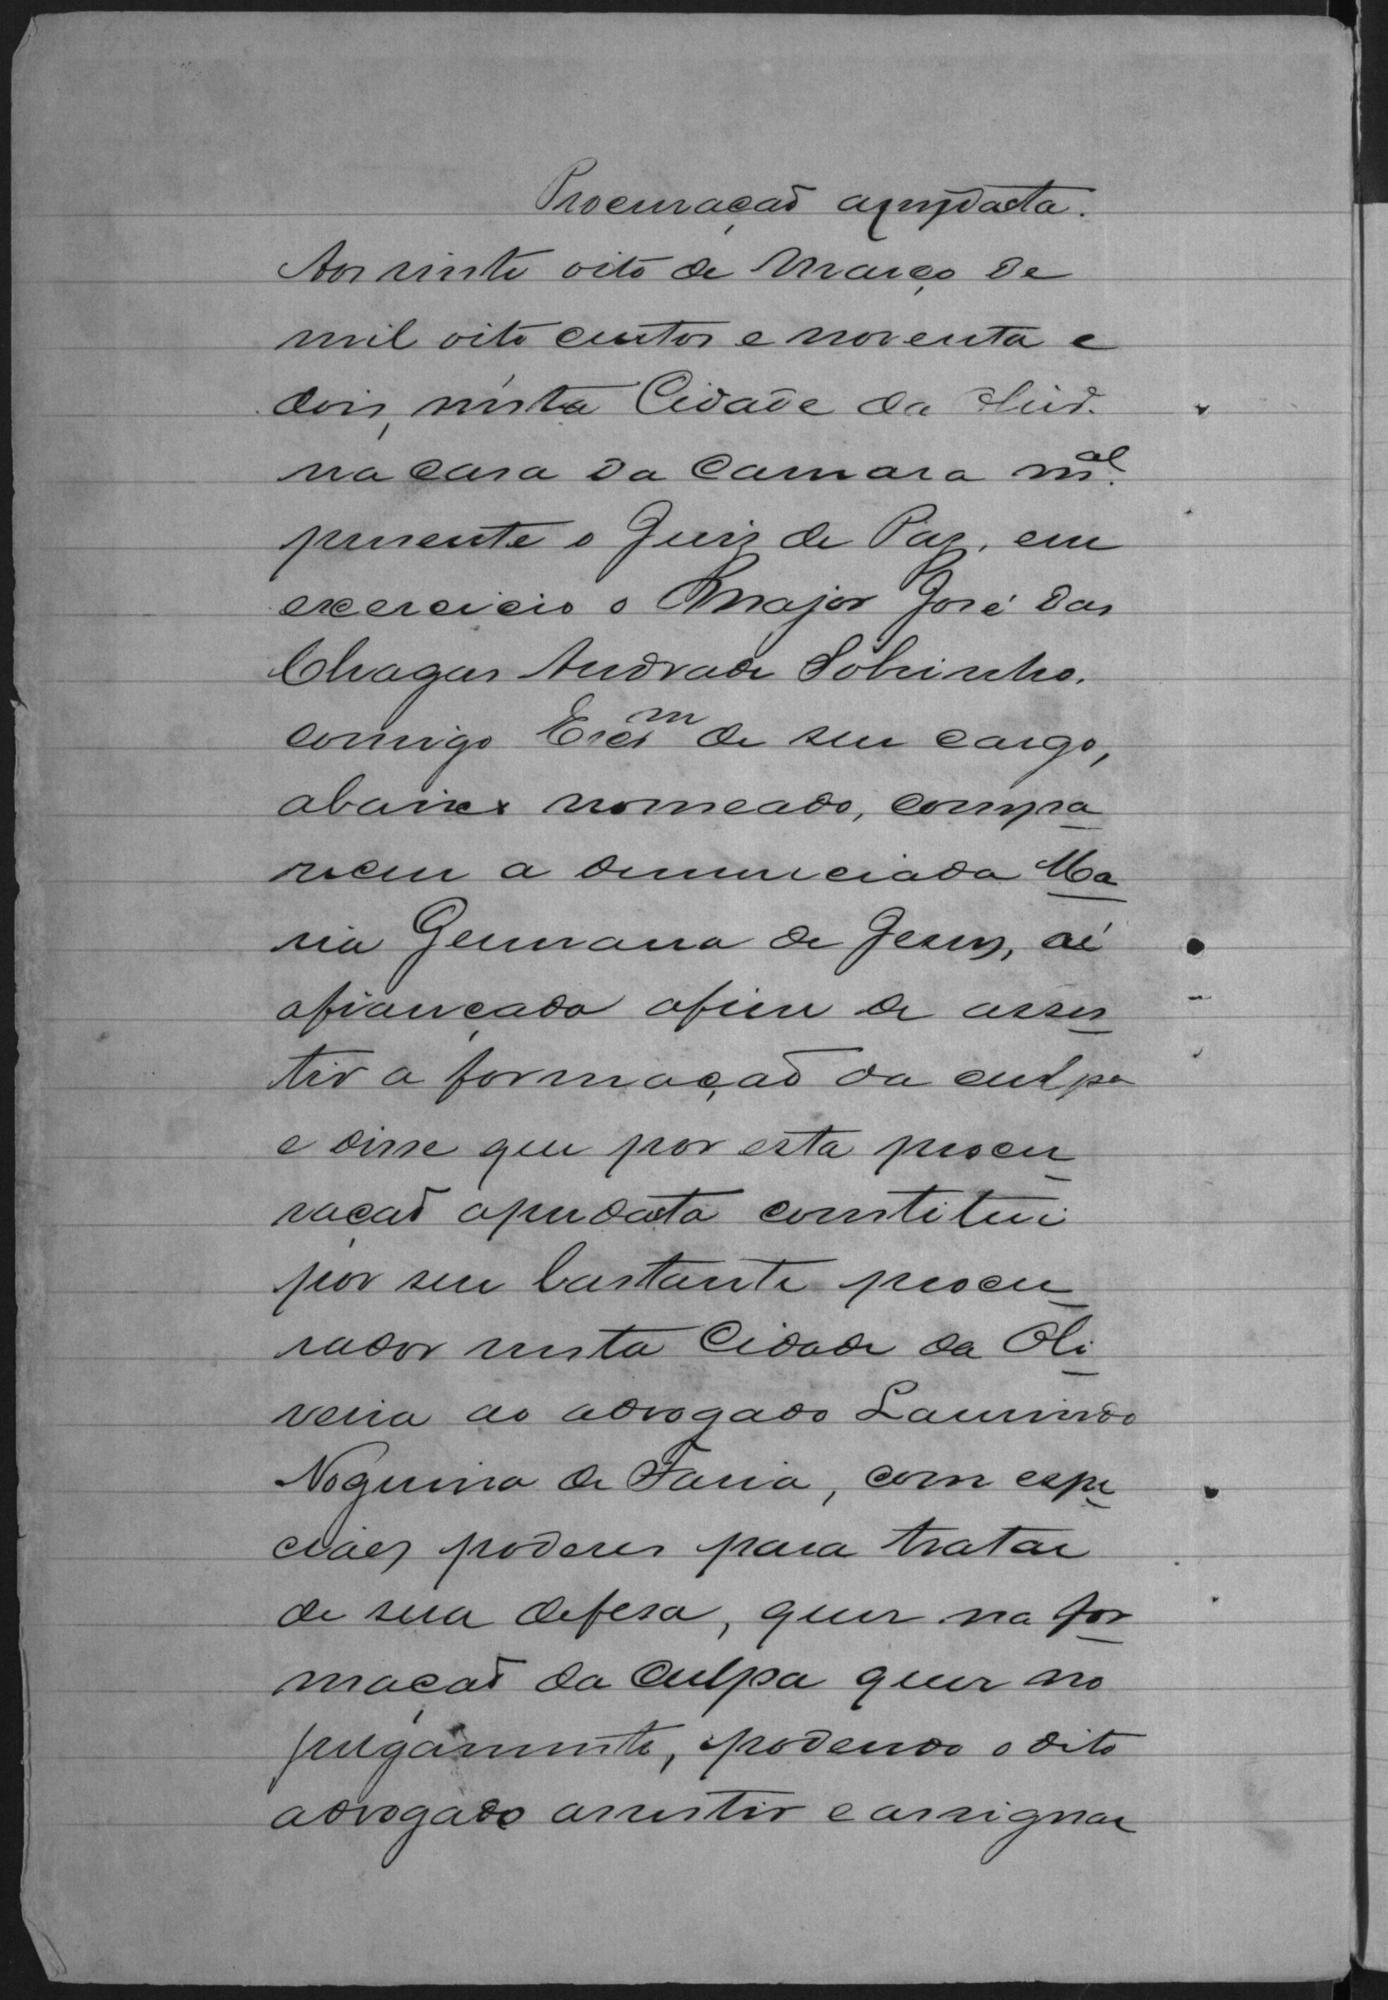 Procuração apudacta.
Aos vinte oito de Março de
mil oito centos e noventa e
dois, nésta Cidade da
na casa da Camara m.al
presente o Juiz de Paz, em
exercicio o Major José das
Chagas Andrade Sobrinho.
comigo Escr.m de seu cargo,
abaixo nomeado, compa
receu a denunciada Ma
ria Germana de Jesus, ré
afiançada afim de assis
tir a formação da culpa
e disse que por esta procu
ração apudacta constitui
por seu bastante procu
rador nesta Cidade da Oli
veira ao advogado Laurindo
Nogueira de Faria, com espe
ciaes poderes para tratar
de sua defesa, quer na for
mação da culpa quer no
julgamento, podendo o dito
advogado assistir e assignar